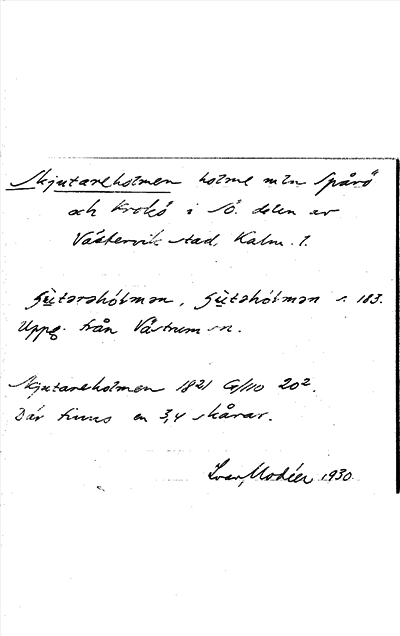 Skjutareholmen holme mln Spårö
och Krokö i SÖ. delen av
Västervik stad, Kalm. l.
Uppg. från Västrum sn.
Skjutareholmen 1821 G/110 202.
Där finns en 3,4 skårar.
Ivar Modéer 1930.